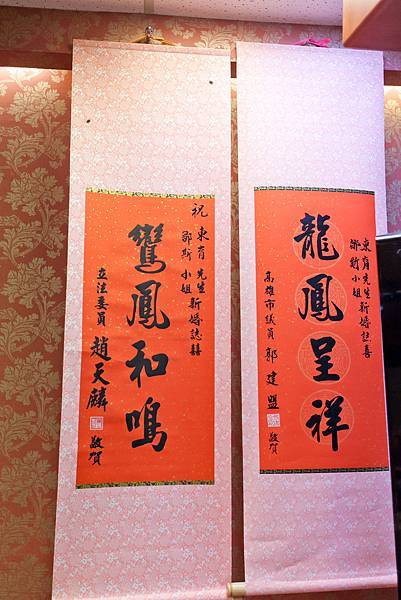 東育先生新婚誌喜
鄒新小姐
龍鳳呈祥
高雄市議員 郭建盟 敬賀
祝
東育先生新婚誌喜
小姐
鸞鳳和鳴
立法委員 趙天麟 敬賀